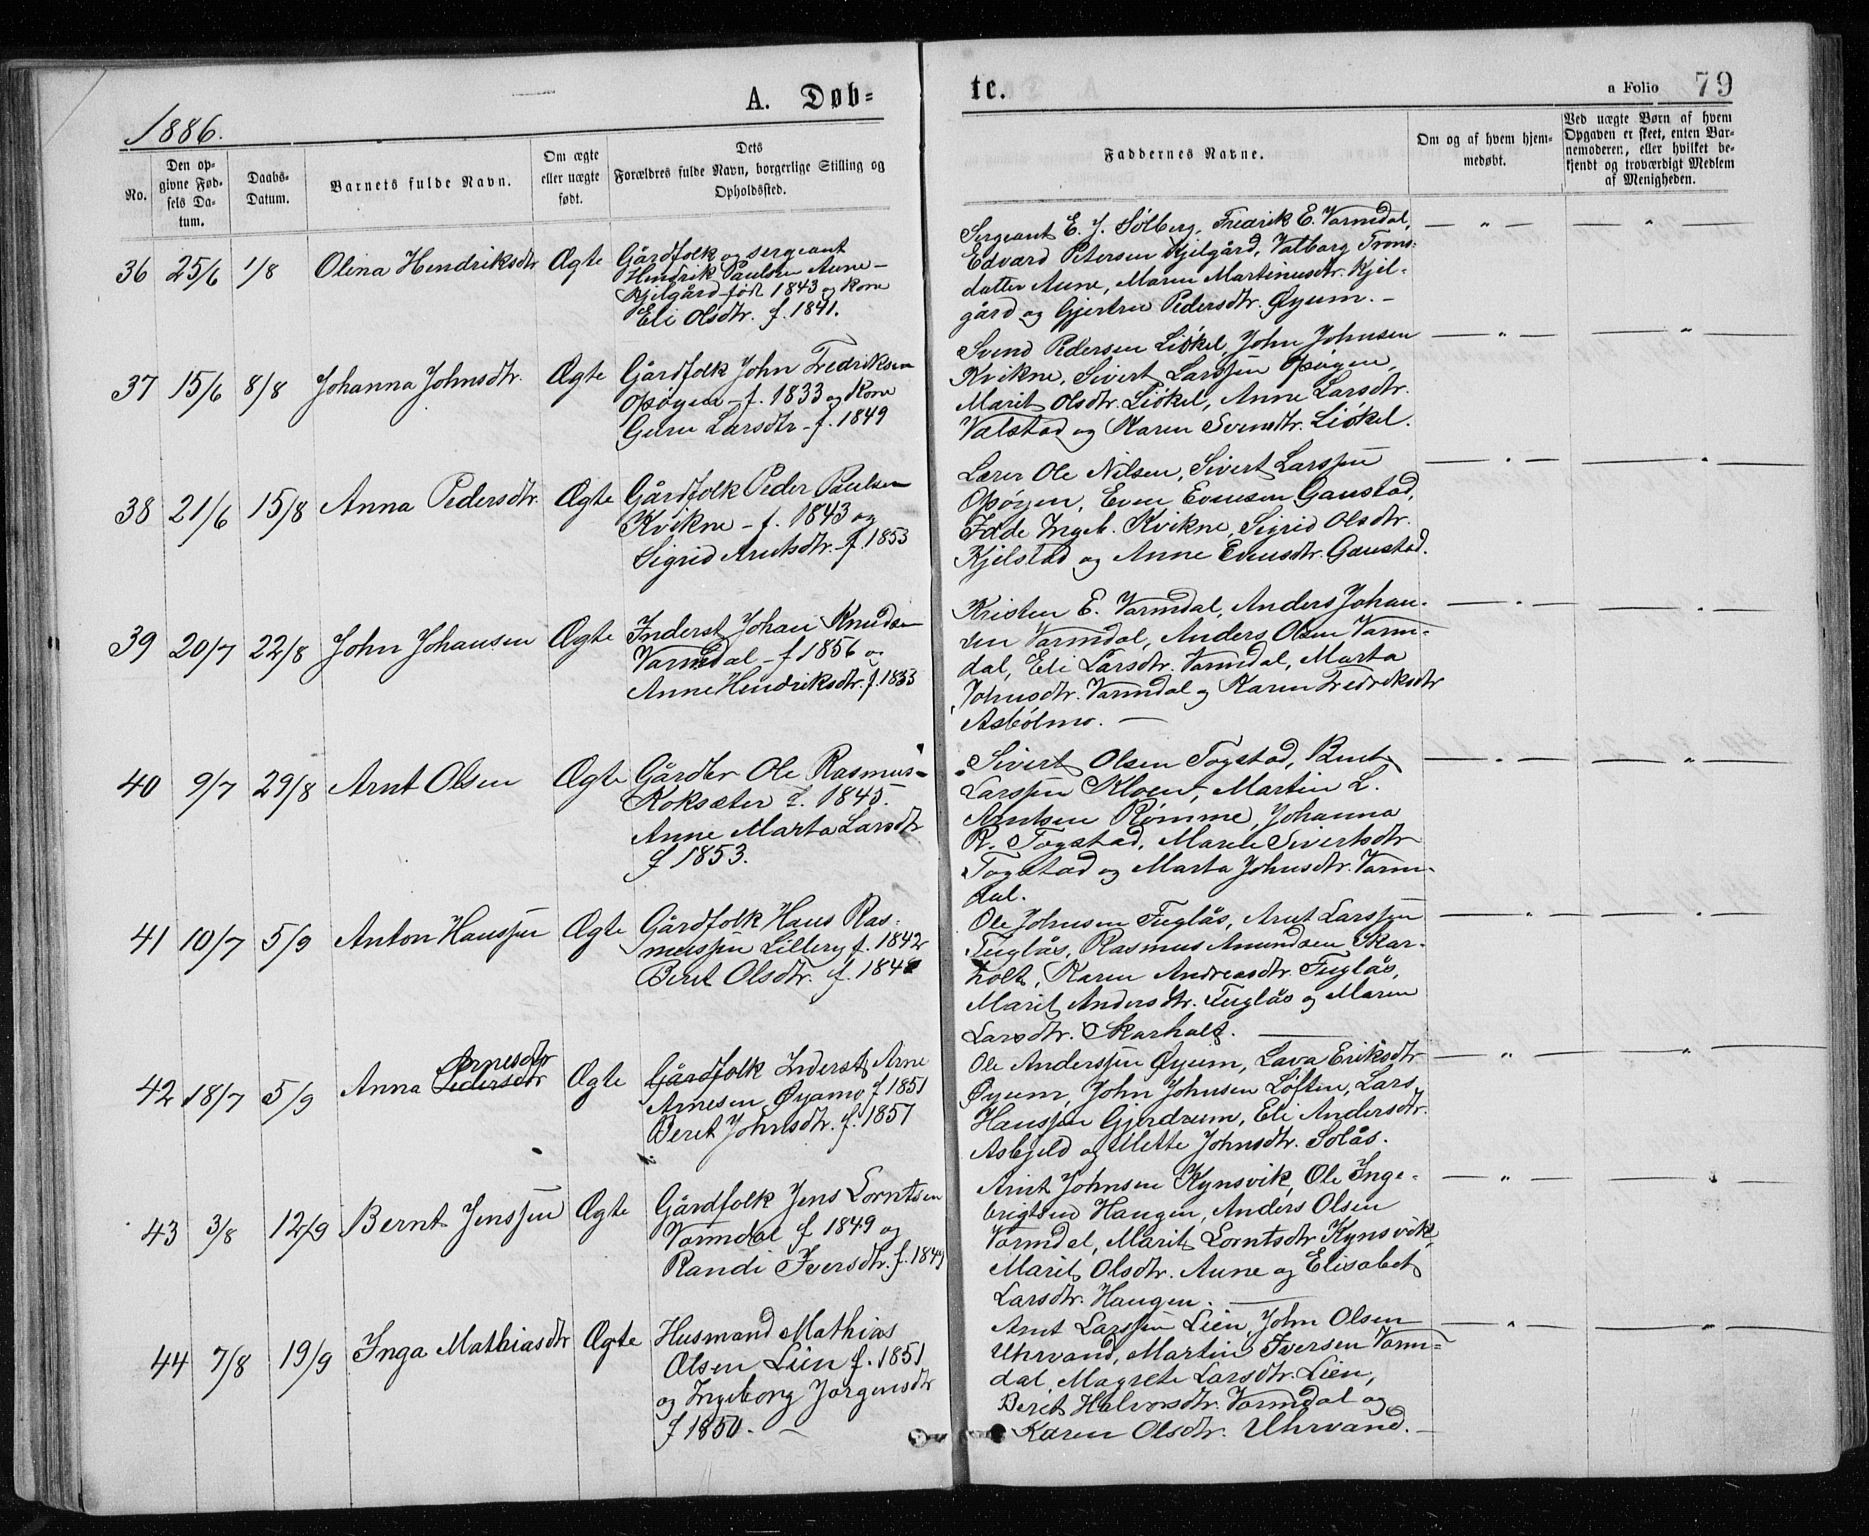 1886.
A. Døb=
te.
a Folio 79
No.
Den op-
givne Fød-
sels Da-
tum.
Daabs-
Datum.
Barnets fulde Navn.
Om ægte
eller uægte
født.
Dets
Forældres fulde Navn, borgerlige Stilling og
Opholdssted.
Faddernes Navne.
Om og af hvem hjem-
medøbt.
Ved uægte Børn af hvem
Opgaven er skeet, enten Bar-
nemoderen, eller hvilket be-
kjendt og troværdigt Medlem
af Menigheden.
36 25/6 1/8 Olina Hendriksdtr Ægte
Gårdfolk og sergeant
Hendrik Paulsen Aune-
Kjelgård født 1843 og Kone
Eli Olsdtr. f. 1841.
Sergeant E. J. Solberg, Fredrik E. Varmdal,
Edvard Petersen Kjelgård, Valborg Trons-
datter Aune, Maren Martinusdtr. Kjel-
gård og Gjertru Pedersdtr. Øyum. -
37 15/6 8/8 Johanna Johnsdtr. Ægte
Gårdfolk John Fredriksen
Opøyen - f. 1833 og Kone
Guru Larsdtr - f. 1849
Svend Pedersen Liökel, John Johnsen
Kvikne, Sivert Larssen Opøyen,
Marit Olsdtr. Liökel, Anne Larsdtr.
Valstad og Karen Svendsdtr. Liökel.
38 21/6 15/8 Anna Pedersdtr. Ægte
Gårdfolk Peder Paulsen
Kvikne - f. 1843 og
Sigrid Arntsdtr. - f. 1853
Lærer Ole Nilsen, Sivert Larssen
Opøyen, Even Evensen Gaustad,
Ingeb. Kvikne, Sigrid Olsdtr.
Kjelstad og Anne Evensdtr. Gaustad.
39 20/7 22/8 John Johansen Ægte
Inderst Johan Knudsen
Varmdal - f 1856 og
Anne Hendriksdtr. f. 1853
Kristen E. Varmdal, Anders Johan-
sen Varmdal, Anders Olsen Varm-
dal, Eli Larsdtr. Varmdal, Marta
Johnsdtr. Varmdal og Karen Fredriksdtr
Asbólmo. -
40 9/7 29/8 Arnt Olsen Ægte
Gårdbr Ole Rasmus-
Koksæter f. 1845.
Anne Marta Larsdtr
f 1853.
Sivert Olsen Togstad, Bent
Larssen Kloen, Martin L.
Arntsen Rømme, Johanna
R. Togstad, Marele Sivertsdtr
Togstad og Marta Johnsdtr. Varm-
dal.
41 10/7 5/9 Anton Hanssen Ægte
Gårdfolk Hans Ras-
mussen Lillery, f. 1842
Berit Olsdtr. f. 184
Ole Johnsen Fuglås, Arnt Larssen
Fuglås, Rasmus Amundsen Skar-
holt, Karen Andreasdtr. Fuglås,
Marit Andersdtr. Fuglås og Maren
Larsdtr. Skarholt.
42 18/7 5/9 Anna Pedersdtr Arnesdtr Ægte
Gårdfolk Inderst Arne
Arnesen Øyamo f 1851
Beret Johnsdtr. f. 1857
Ole Anderssen Øyum, Lava Eriksdtr
Øyum, John Johnsen Løften, Lars
Hanssen Gjerdrum, Eli Andersdtr.
Asbjeld og Mette Johnsdtr. Solås.
43 3/8 12/9 Bernt Jenssen Ægte
Gårdfolk Jens Lorntsen
Varmdal f 1849 og
Randi Iversdtr. f. 1849
Arnt Johnsen Kynsvik, Ole Inge-
brigtsen Haugen, Anders Olsen
Varmdal, Marit Lorntsdtr Kynsvik,
Maret Olsdtr. Aune og Elisabet
Larsdtr. Haugen.
44 7/8 19/9 Inga Mathiasdtr Ægte
Husmand Mathias
Olsen Lien f. 1851
og Ingeborg Jørgensdtr
f 1850. -
Arnt Larssen Lien, John Olsen
Uhrvand, Martin Iversen Varm-
dal, Magrete Larsdtr. Lien,
Berit Halvorsdtr. Varmdal og
Karen Olsdtr. Uhrvand. -